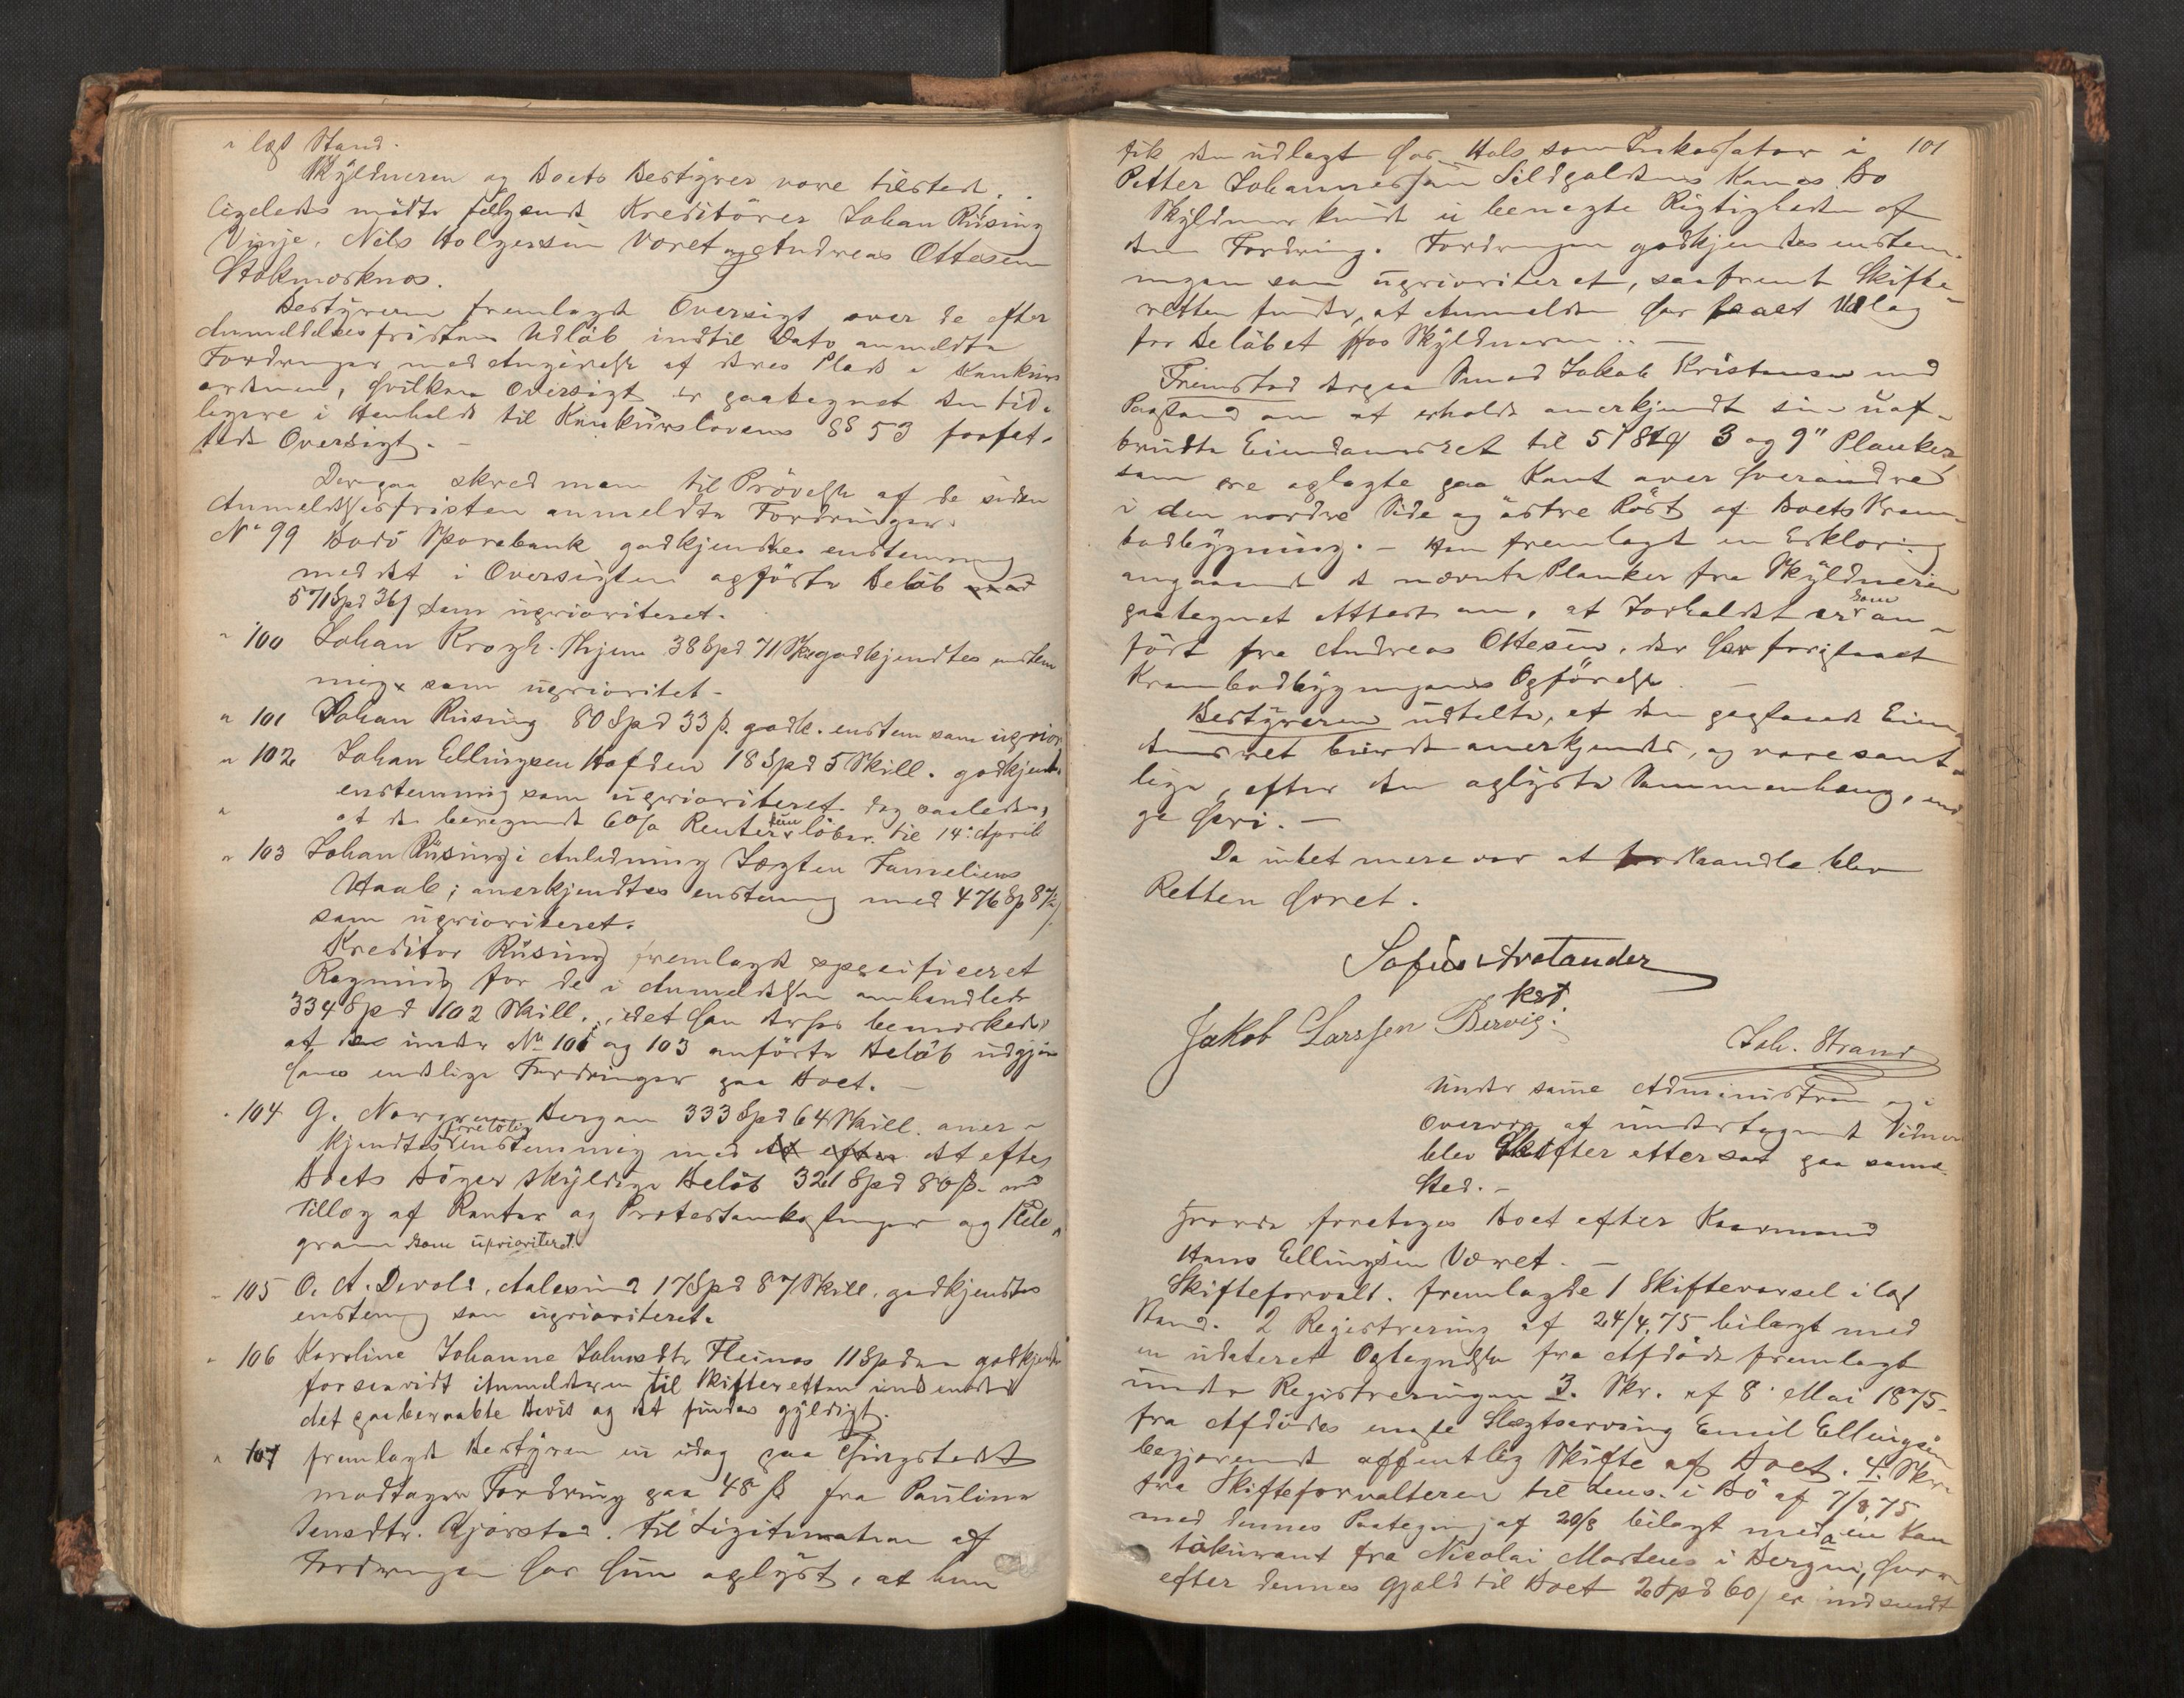 i lagl Stand.
Skyldneren og Boets Bestyrer vare tilstede.
Ligeledes mødte følgende Kreditorer Johan Rüsing
Vinje, Nils Holgersen Været og Andreas Ottesen
Stokmarknes.
Bestyreren fremlagde Oversigt over de efter
Anmeldelsesfristens Udløb indtil Dato anmeldte
Fordringer med Angivelse af deres Plads i Konkurs
ordenen, hvilken Oversigt er paategnet den tid-
ligere i Henhold til Konkurslovens §§ 53 forfat-
tede Oversigt. -
Derpaa skred man til Prøvelse af de siden
Anmeldelsesfristen anmeldte Fordringer.
No 99 Bodø Sparebank godkjendtes enstemmig
med det i Oversigten opførte Beløb
571 Spd 36 s som uprioriteret.
" 100 Johan Krogh. 38 Spd 71 Sk godkjendtes enstem
mig som uprioritet -
" 101 Johan Rüsing 80 Spd 33 s. godk. enstem som uprior
" 102 Johan Ellingsen Hofden 18 Spd 5 Skill. godkjendt
enstemmig som uprioriteret dog saaledes,
" at de beregnede 6 % Renter kun løber til 14. April
" 103 Johan Rüsing i Anledning Jægten Familiens
Haab; anerkjendtes enstemmig med 476 Sp 87 s
som uprioriteret.
Kreditor Rüsing fremlagde specificeret
Regning for de i Anmeldelsen omhandlede
334 Spd 102 Skill., idet han derhos bemærkede
at de under No 101 og 103 anførte Beløb udgjør
hans endelige Fordringer paa Boet. -
" 104 G. Bergen 333 Spd 64 Skill. aner-
kjendtes foreløbig enstemmig med det efter det efter
Boets Bøger skyldige Beløb 321 Spd 80 s. med
Tillæg af Renter og Protestomkostninger og Tele-
gram som uprioriteret.
" 105 O. A. Devold, Aalesund 17 Spd 87 Skill. godkjendtes
enstemig som uprioriteret.
" 106 Karoline Johanne Johnsdtr Fleines 11 Spd godkjendtes
forsaavidt Anmelderen til Skifteretten indsender
det paaberaabte Bevis og det findes gyldigt.
" 107 fremlagde Bestyreren en idag paa Thingstedet
modtagen Fordring paa 48 s fra Pauline
Jensdtr. Kjørstad. Til Legitimation af
Fordringen har hun oplyst, at hun
101
fik den udlagt hos Hals som Inkassator i
Petter Johannessøn Sildpoldens Kones Bo
Skyldneren kunde ei benægte Rigtigheden af
den Fordring. Fordringen godkjendtes enstem-
migen som uprioriteret, saafremt Skifte-
retten finder, at Anmelderen har faaet Udlæg
for Beløbet hos Skyldneren. -
Fremstod derpaa Smed Jakob Kristensen med
Paastand om at erholde anerkjendt sin uaf-
brudte Eiendomsret til 3 og 9" Planker
som ere oplagte paa Kant over hverandre
i den nordre Side og østre Røst af Boets Kram-
bodbygning. - Han fremlagde en Erklæring
angaaende de nævnte Planker fra Skyldneren
paategnet Attest om, at Forholdet er som an-
ført fra Andreas Ottesen, der har forestaaet
Krambodbygningens Opførelse. -
Bestyreren udtalte, at den paastaaede Eien-
domsret burde anerkjendes, og vare samt-
lige, efter den oplyste Sammenhæng, eni-
ge heri. -
Da intet mere var at forhandle blev
Retten hævet.
Sofus Arctander
kst
Jakob Larssen Bervig.
Joh. Strand
Under samme Administration og i
Overvær af undertegnede Vidner
blev Skifter ettersat paa samme
Sted. -
Førende foretoges Boet efter Kaarmand
Hans Ellingsen Været. -
Skifteforvalt. fremlagde 1 Skiftevarsel i lagl
Stand. 2 Registrering af 24/4. 75 bilagt med
en udateret Optegnelse fra Afdøde fremlagt
under Registreringen 3. Skr. af 8. Mai 1875
fra Afdødes eneste Slægtsarving Emil Ellingsen
begjærende offentlig Skifte af Boet. 4. Skr.
fra Skifteforvalteren til Lens. i Bø af 7/8 75
med dennes Paategning af 20/8 bilagt med a en Kon
tokurant fra Nicolai Martens i Bergen, hvor-
efter dennes Gjæld til Boet 2 Spd 60 s er indsendt